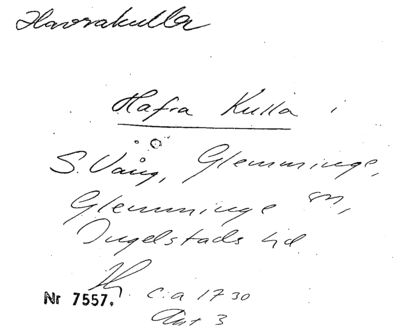 Havrakulla
Hafra Kulla i
S. Vång, Glemminge,
Glemminge sn,
Ingelstads hd
Nr 7557. c:a 1730
Akt 3